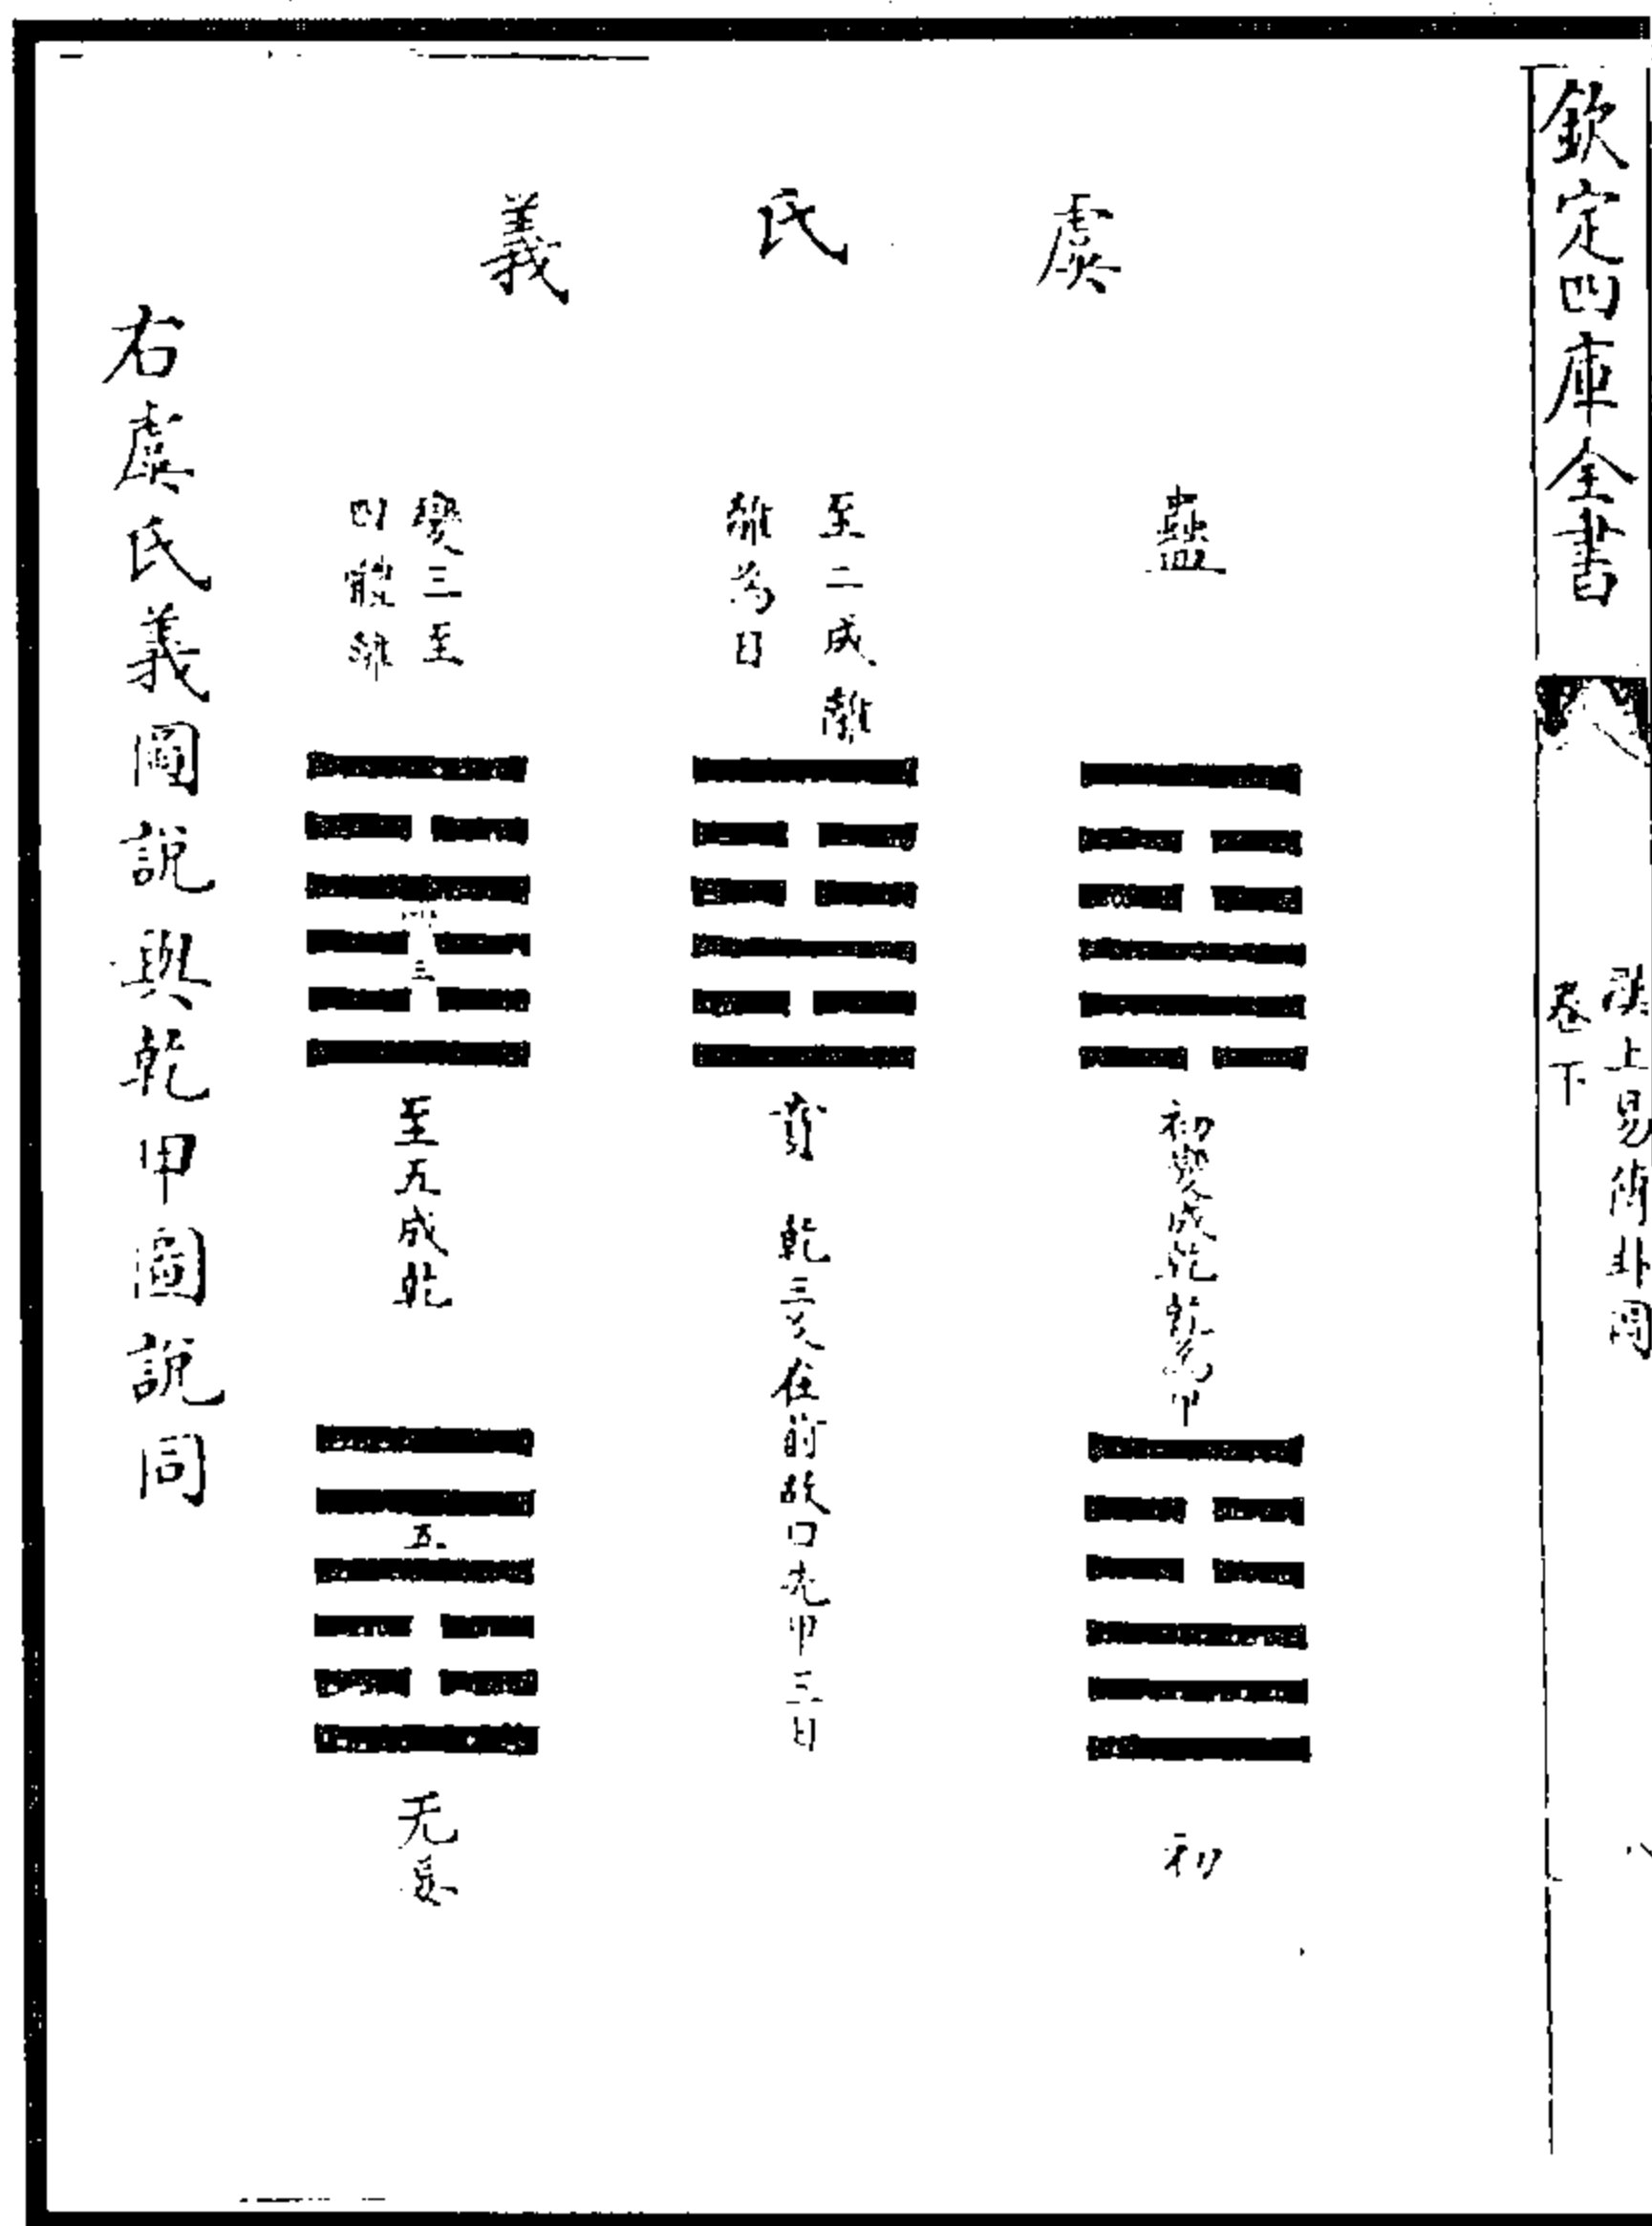 欽定四庫全書
漢上易傳卦圖
卷下
虞氏義
蠱
初變成乾乾為甲
初
至二成離
離為日
賁
乾三爻在前故曰先甲三日
變三至
四體離
四
三
至五成乾
五
无妄
右虞氏義圖說與乾甲圖說同